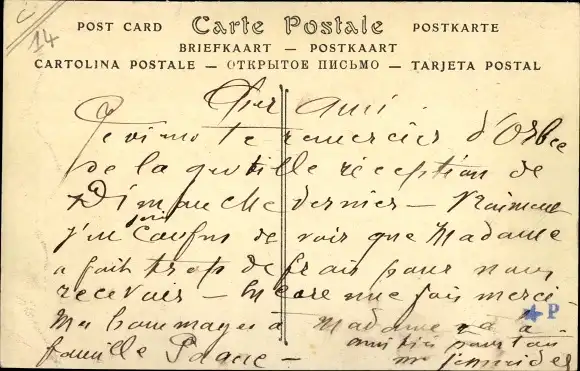 14
POST CARD Carte Postale POSTKARTE
BRIEFKAART — POSTKAART
CARTOLINA POSTALE — ОТКРЫТОЕ ПИСЬМО — TARJETA POSTAL
Cher ami.
Je viens te remercier d'
de la gentille réception de
Dimanche dernier — Vraiment
j'suis confus de voir que Madame
a fait trop de frais pour nous
recevoir — Encore une fois merci
Mes hommages à Madame
famille — amitiés pour toi
P